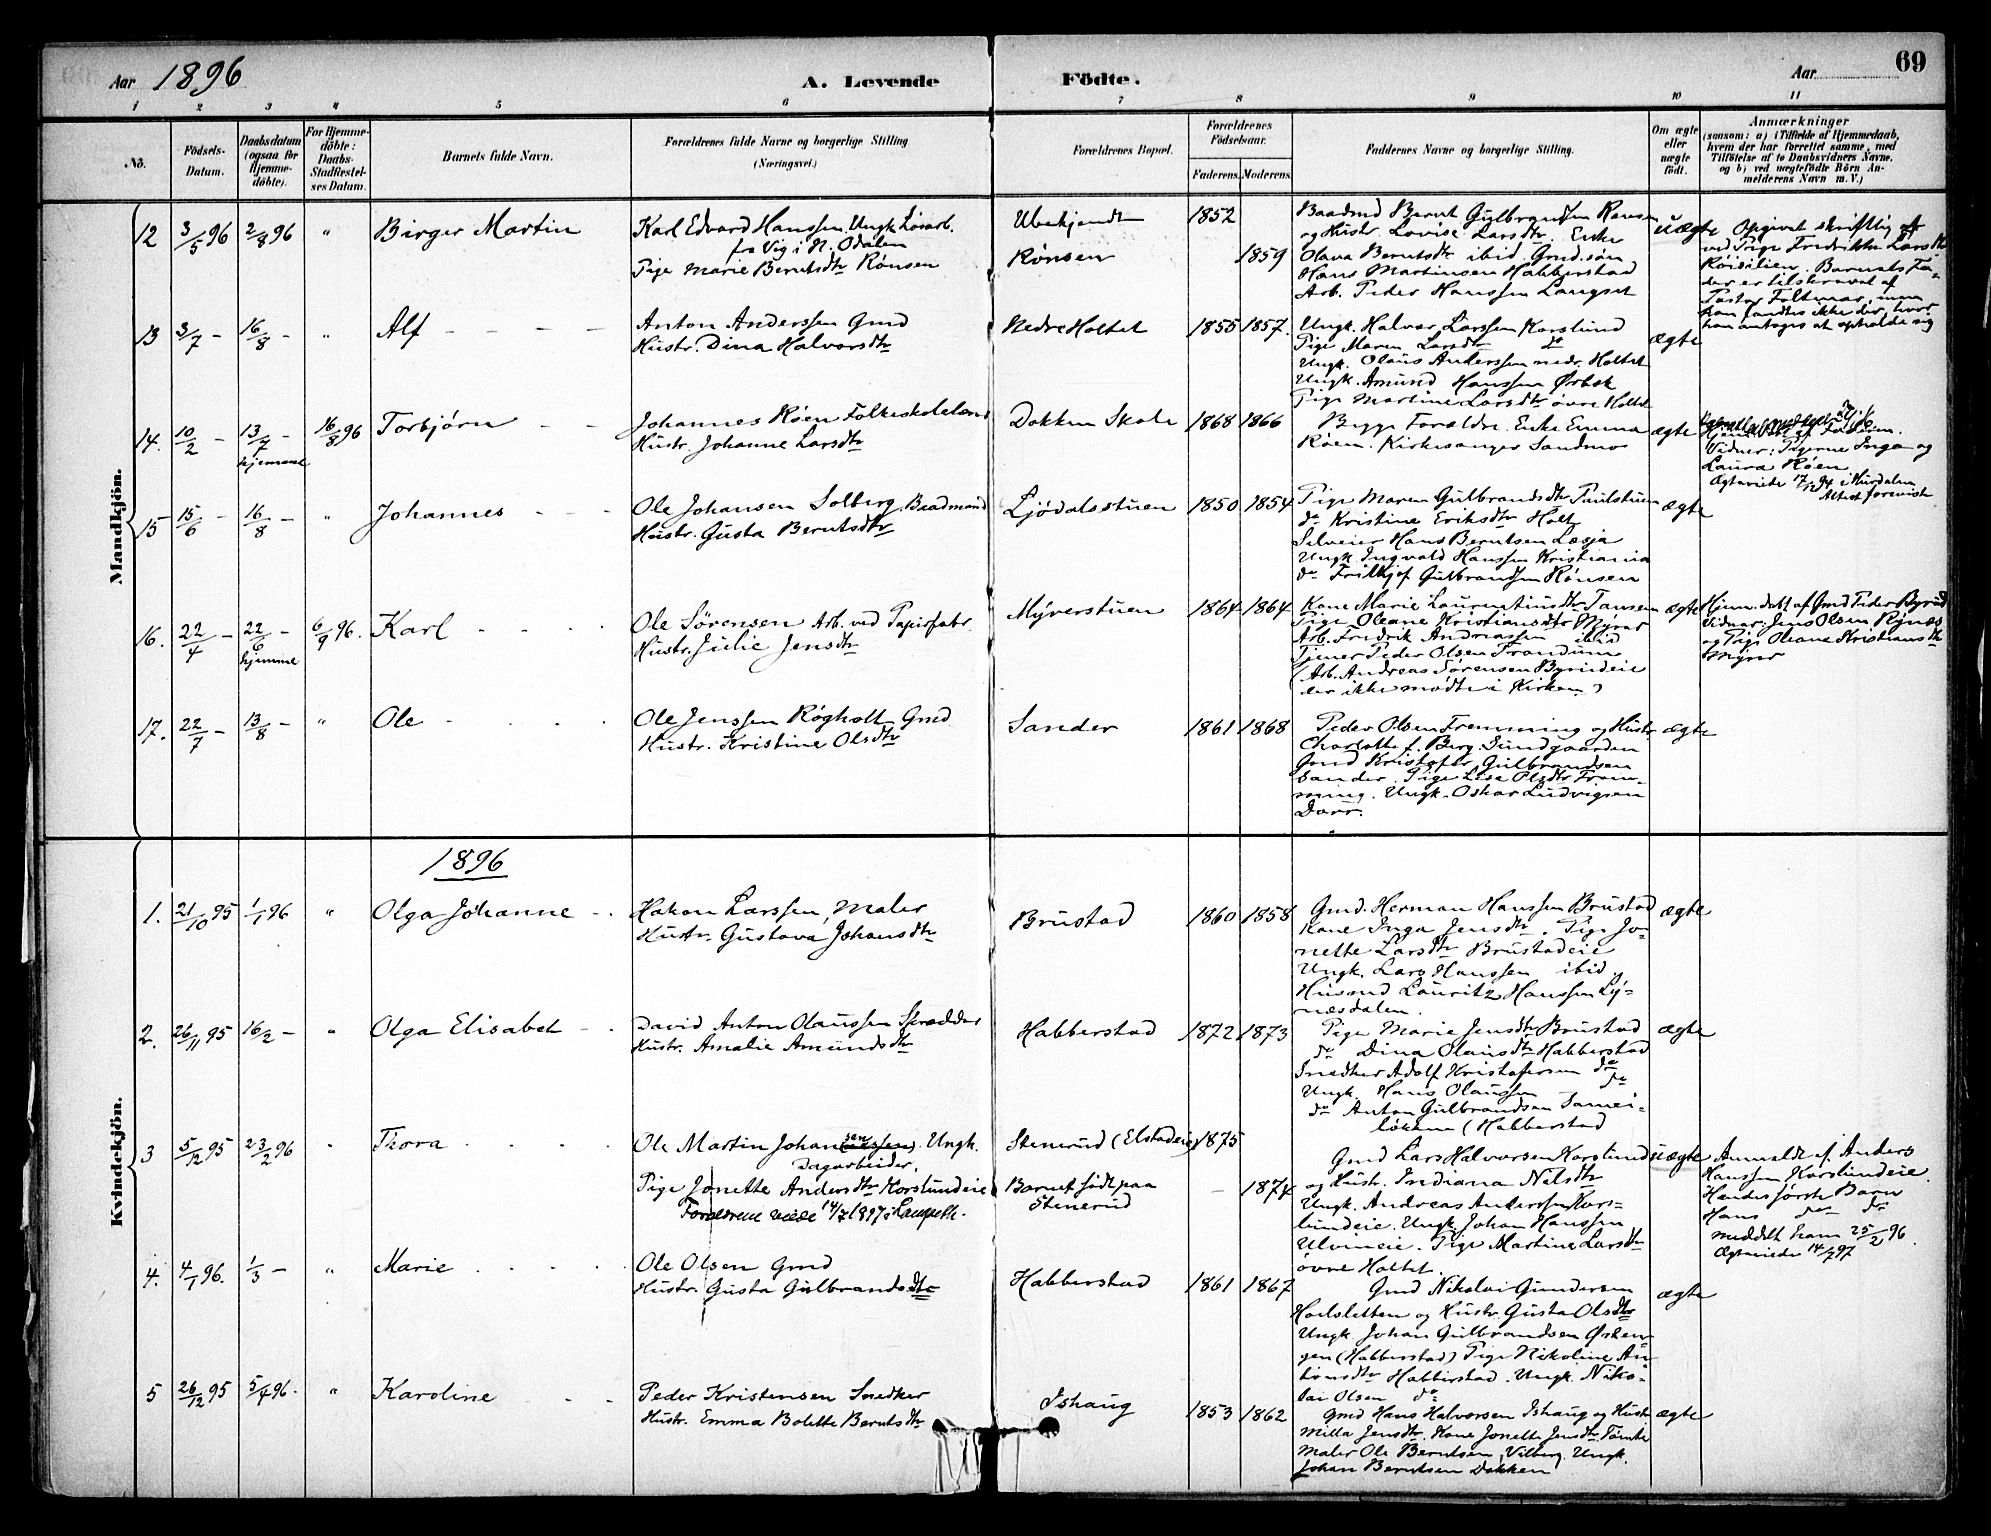 Aar 1896 A. Levende Födte. Aar 69
1 2 3 4 5 6 7 8 9 10 11
No. Födsels-Datum. Daabsdatum (ogsaa for Hjemmedöbte). For Hjemmedöbte: Daabs-Stadfæstelses Datum. Barnets fulde Navn. Forældrenes fulde Navne og borgerlige Stilling (Næringsvei.) Forældrenes Bopæl. Forældrenes Födselsaar. Faderens. Moderens. Faddernes Navne og borgerlige Stilling. Om ægte eller uægte födt. Anmærkninger (saasom: a) i Tilfælde af Hjemmedaab, hvem der har forrettet samme, med Tilföielse af to Daabsvidners Navne, og b) ved uægtefödte Börn Anmelderens Navn m. V.)
Mandkjön.
12 3/5 96 2/8 96 " Birger Martin
Karl Edvard Hanssen Ungk. Lösarb.
fra Vig i N. Odalen
Pige Marie Berntsdtr Rönsen
Ubekjendt 1852
Rönsen 1859
Baadmd Bernt Gulbrandsen Rønsen
og Hustr. Lovise Larsdtr. Enke
Olava Berntsdtr ibid. Gmd.søn
Hans Martinsen Habberstad
Arb. Peder Hanssen Langset
uægte
Opgivet skriftlig
ved Pige Fredrikke Larsdtr
Röisilien. Barnets Fa-
der er tilskrevet af
Pastor Faltmar, men
han fandtes ikke der, hvor
han antages at opholde sig
13 3/7 – 16/8 – " Alf – – – –
Anton Anderssen Gmd
Hustr. Dina Halvorsdtr
Nedre Holtet 1855 1857.
Ungk. Halvor Larssen Korslund
Pige Maren Larsdtr do
Ungk. Olaus Anderssen nedr. Holtet
Ungk. Amund Hanssen Ørbek
Pige Martine Larsdtr øvre Holtet
ægte
14. 10/2 – 13/7 – hjemme 16/8 96 Torbjørn – –
Johannes Røen Folkeskolelærer
Hustr. Johanne Larsdtr
Dokken Skole 1868 1866
Begge Forældre. Enke Emma
Røen. Kirkesanger Sandmo
ægte
Hjemmedöbt af Faderen.
Vidner: Pigerne Inga og
Laura Røen
Ægteviede 17/12 94 i Hurdalen
Attest forevist
15 15/6 – 16/8 – " Johannes – – –
Ole Johansen Solberg, Baadmand
Hustr. Gusta Berntsdtr
Ljödalsstuen 1850 1854
Pige Maren Gulbrandsdtr Paulstuen
do Kristine Eriksdtr Holt
Selveier Hans Berntsen Læsja
Ungk. Ingvald Hanssen Kristiania
do Fritkjof Gulbrandsen Rønsen
ægte
16. 22/4 – 22/6 – hjemme 6/9 96. Karl – – – –
Ole Sörensen Arb. ved Papirfabr.
Hustr. Julie Jensdtr
Myrerstuen 1864 1864
Kone Marie Laurentiusdtr Tansen
Pige Oleane Kristiansdtr Myrer
Arb. Fredrik Andreassen ibid
Tjener Peder Olsen Trandum
(Arb. Andreas Sörensen Byrudeie
der ikke mødte i Kirken)
ægte
Hjem.döbt af Gmd Peder Byrud
Vidner: Jens Olsen Rynæs
og Pige Oleane Kristiansdtr
Myrer
17. 22/7 – 13/8 – " Ole – – – –
Ole Jenssen Røgholt Gmd
Hustr. Kristine Olsdtr
Sander 1861 1868
Peder Olsen Fremming og Hustr
Charlotte f. Berg. Sundgaarden
Gmd Kristoffer Gulbrandsen
Sander. Pige Lise Olsdtr Frem-
ming. Ungk. Oskar Ludvigsen
Dorr.
ægte
Kvindekjön.
1896
1. 21/10 95 1/1 96 " Olga Johanne – –
Hakon Larssen, Maler
Hustr. Gustava Johansdtr
Brustad 1860 1858
Gmd. Herman Hanssen Brustad
Kone Inga Jensdtr. Pige Jo-
nette Larsdtr Brustadeie
Ungk. Lars Hanssen ibid.
Husmd Lauritz Hanssen Ly-
næsdalen.
ægte
2. 26/11 95 16/2 – " Olga Elisabet – –
David Anton Olaussen Skrædder
Hustr. Amalie Amundsdtr
Habberstad 1872 1873
Pige Marie Jensdtr Brustad
do Dina Olausdtr Habberstad
Snedker Adolf Kristofersen do
Ungk. Hans Olaussen do
do Anton Gulbrandsen Samei-
løkken (Habberstad
ægte
3 5/12 95 23/2 96 " Thora – – – –
Ole Martin Johansen Ungk.
Dagarbeider.
Pige Jonette Andersdtr Korslundeie
Forældrene viede 14/7 1897 i Langseth.
Stenerud (Elstadeie) 1875
Barnet födt paa
Stenerud – 1874
Gmd Lars Halvorsen Korslund
og Hustr. Indiana Nilsdtr
Ungk. Andreas Anderssen Kors-
lundeie. Ungk. Johan Hanssen
Ulvineie. Pige Martine Larsdtr
øvre Holtet.
uægte
Anmeldt af Anders
Hanssen Korslundeie.
Hendes første Barn
Hans do do
meddelt ham 25/2 96.
Ægteviede 14/7 97
4. 4/1 96. 1/3 – " Marie – – – –
Ole Olsen Gmd
Hustr. Gusta Gulbrandsdtr
Habberstad 1861 1867
Gmd Nikolai Gundersen
Holsletten og Hustr. Gusta Olsdtr
Ungk Johan Gulbrandsen Østen-
gen (Habberstad) Pige Nikoline An-
tonsdtr Habberstad. Ungk. Niko-
lai Olsen do
ægte
5 26/12 95 5/4 96. " Karoline – –
Peder Kristensen Snedker
Hustr. Emma Bolette Berntsdtr
Ishaug 1853 1862
Gmd Hans Halvorsen Ishaug og Hustr
Milla Jensdtr. Kone Jonette Jensdtr Tømte
Maler Ole Berntsen, Vilberg. Ungk.
Johan Berntsen Dokken
ægte